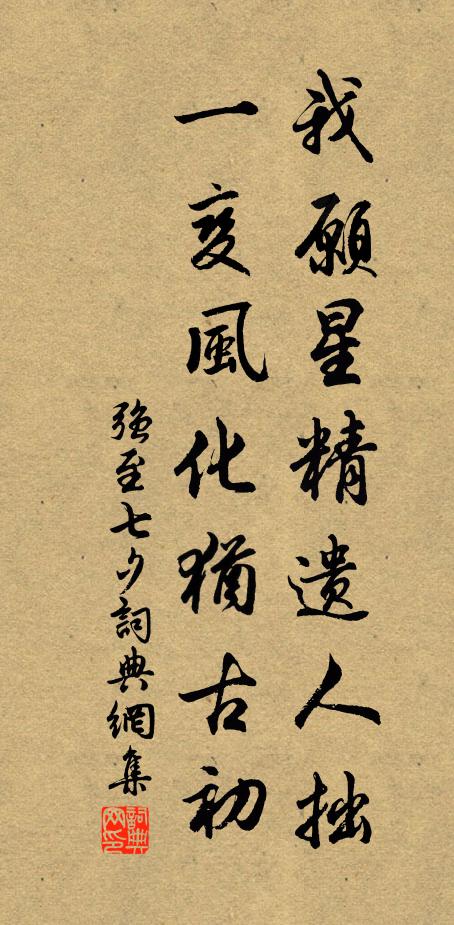 我願星精遺人拙
一变風化猶古初
強至七夕詞典網集
詞典网印